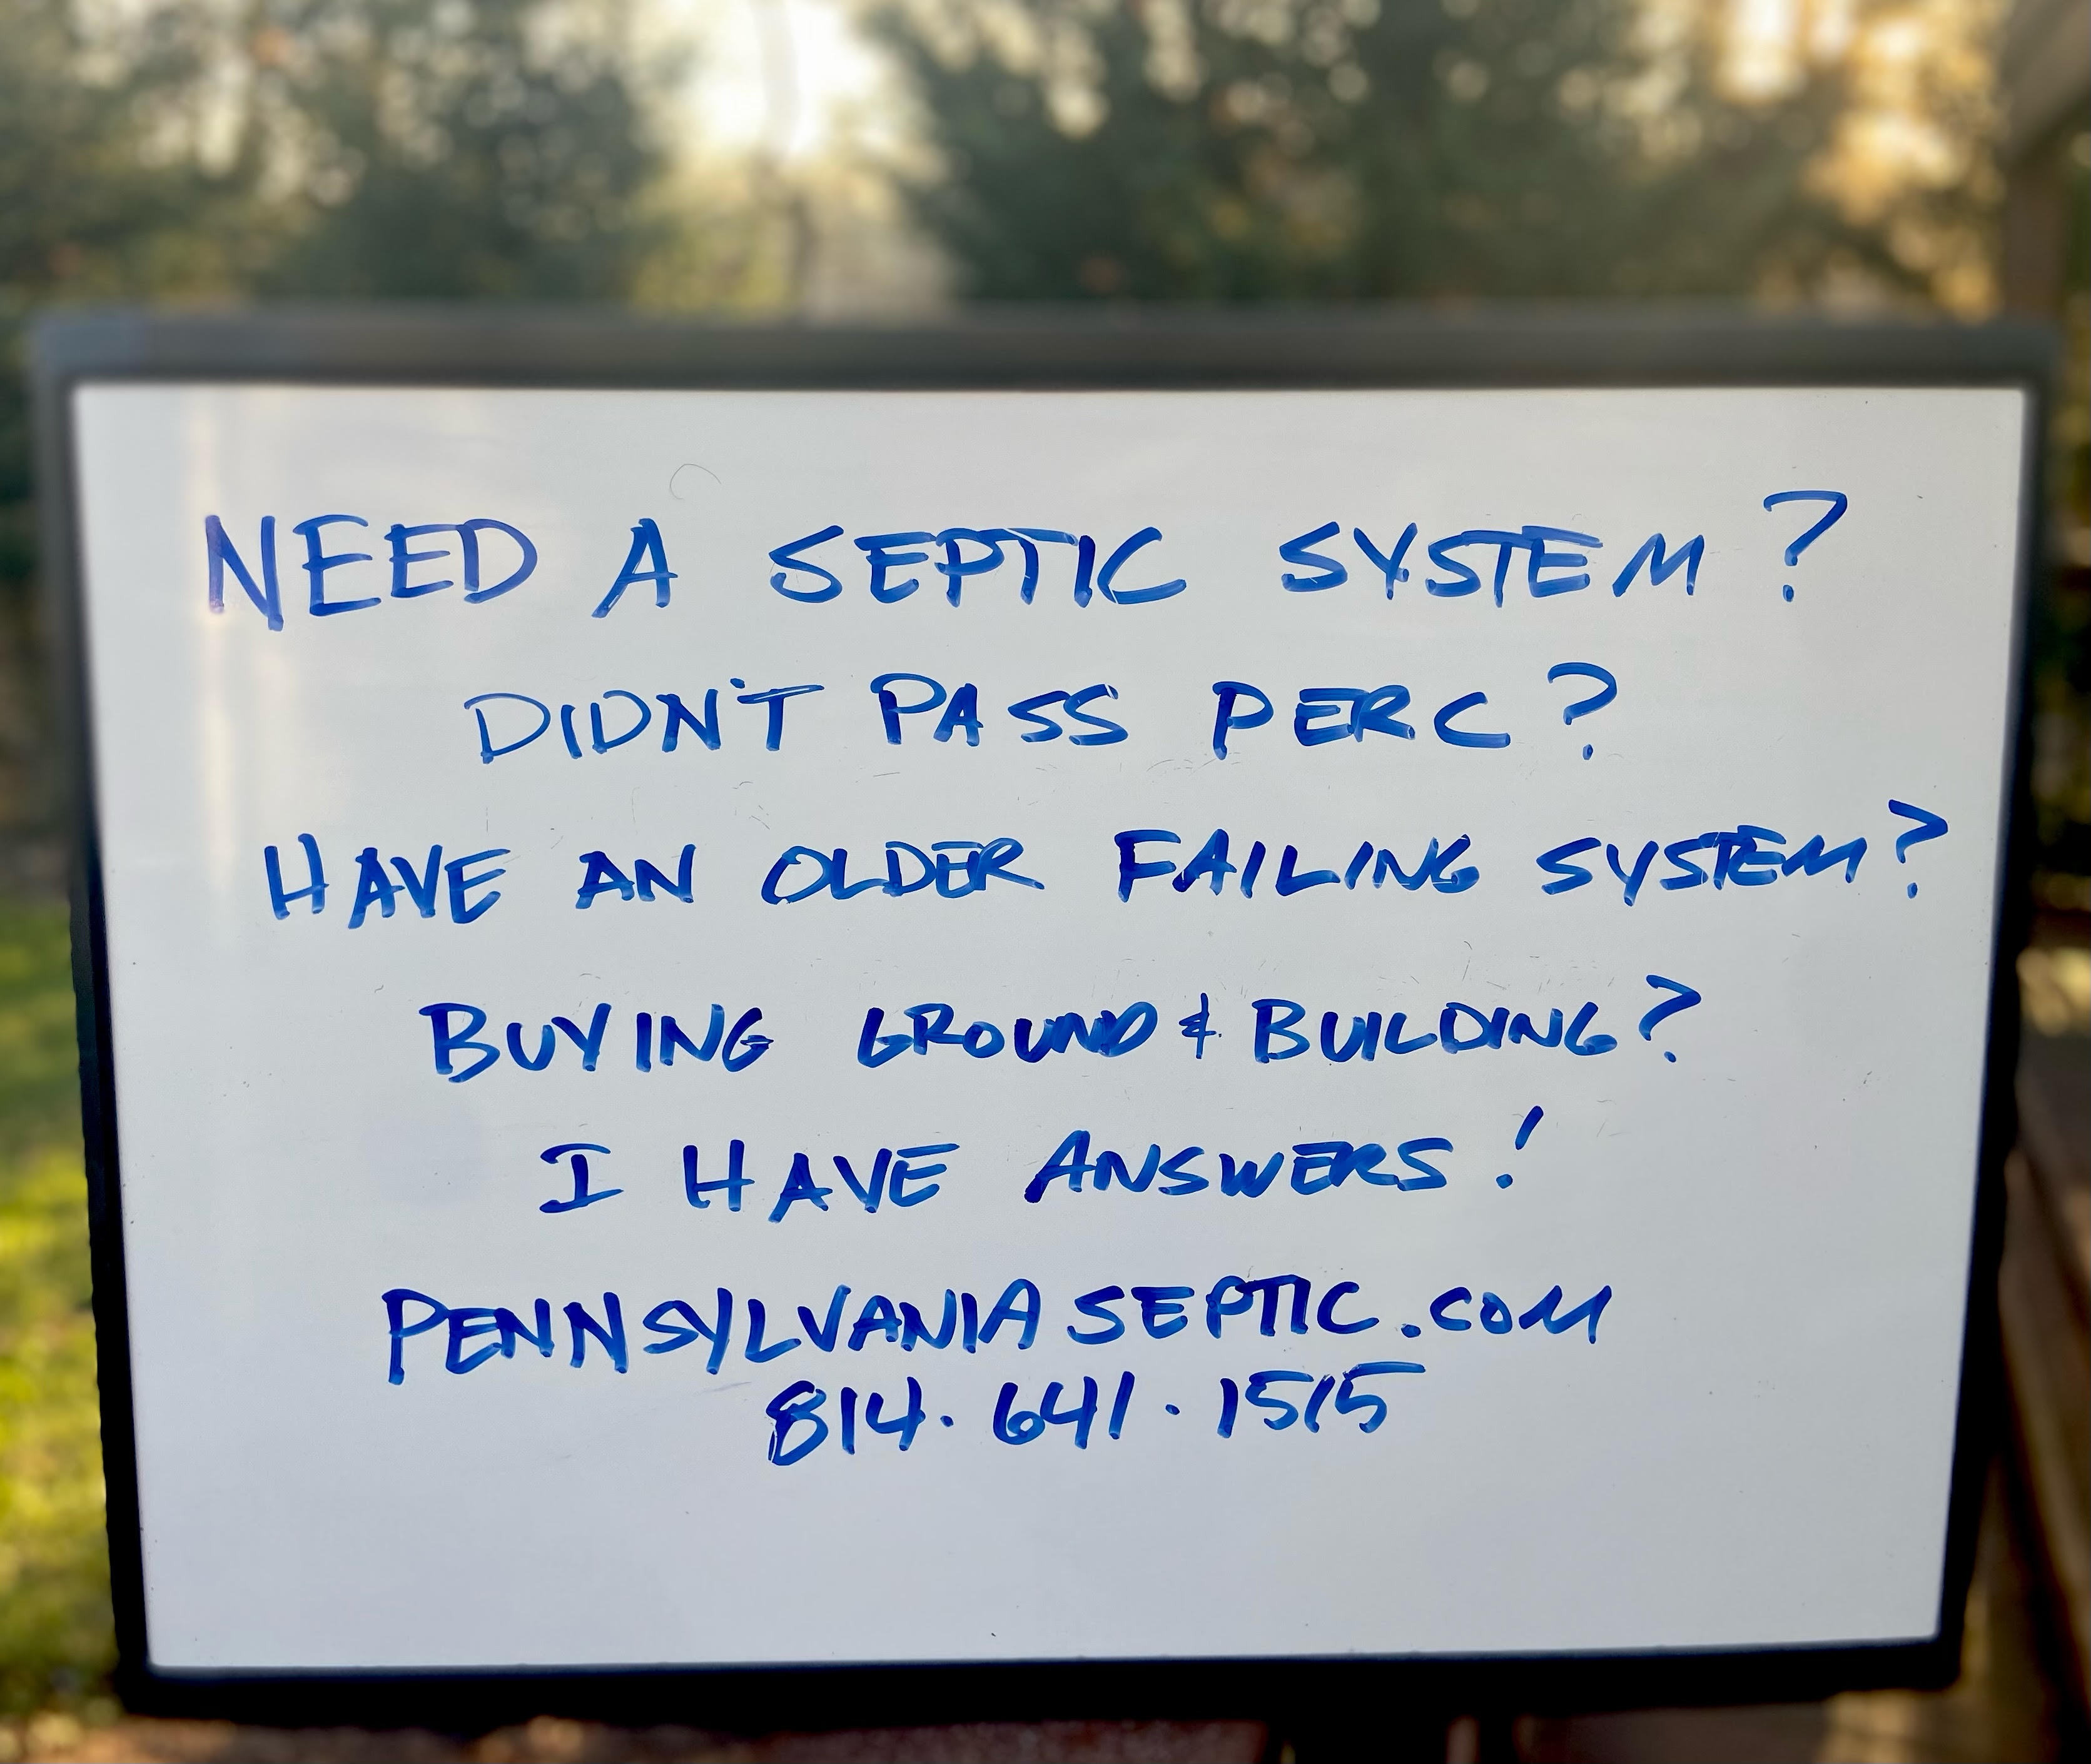 NEED A SEPTIC SYSTEM?
DIDN'T PASS PERC?
HAVE AN OLDER FAILING SYSTEM?
BUYING GROUND & BUILDING?
I HAVE ANSWERS!
PENNSYLVANIASEPTIC.COM
814.641.1515